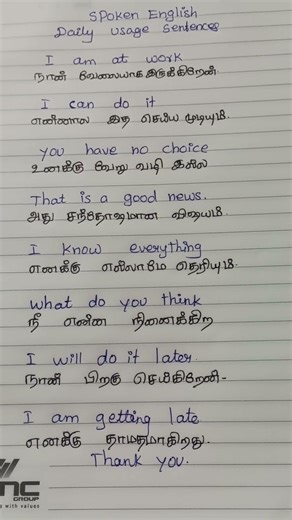 Spoken English
Daily usage sentences
I am at work
நான் வேலையாக இருக்கிறேன்.
I can do it
என்னால இத செய்ய முடியும்.
you have no choice
உனக்கு வேறு வழி இல்ல
That is a good news.
அது சந்தோஷமான விஷயம்.
I know everything
எனக்கு எல்லாமே தெரியும்.
what do you think
நீ என்ன நினைக்கிற
I will do it later.
நான் பிறகு செய்கிறேன்-
I am getting late
எனக்கு தாமதமாகிறது.
Thank you.
GROUP
with values